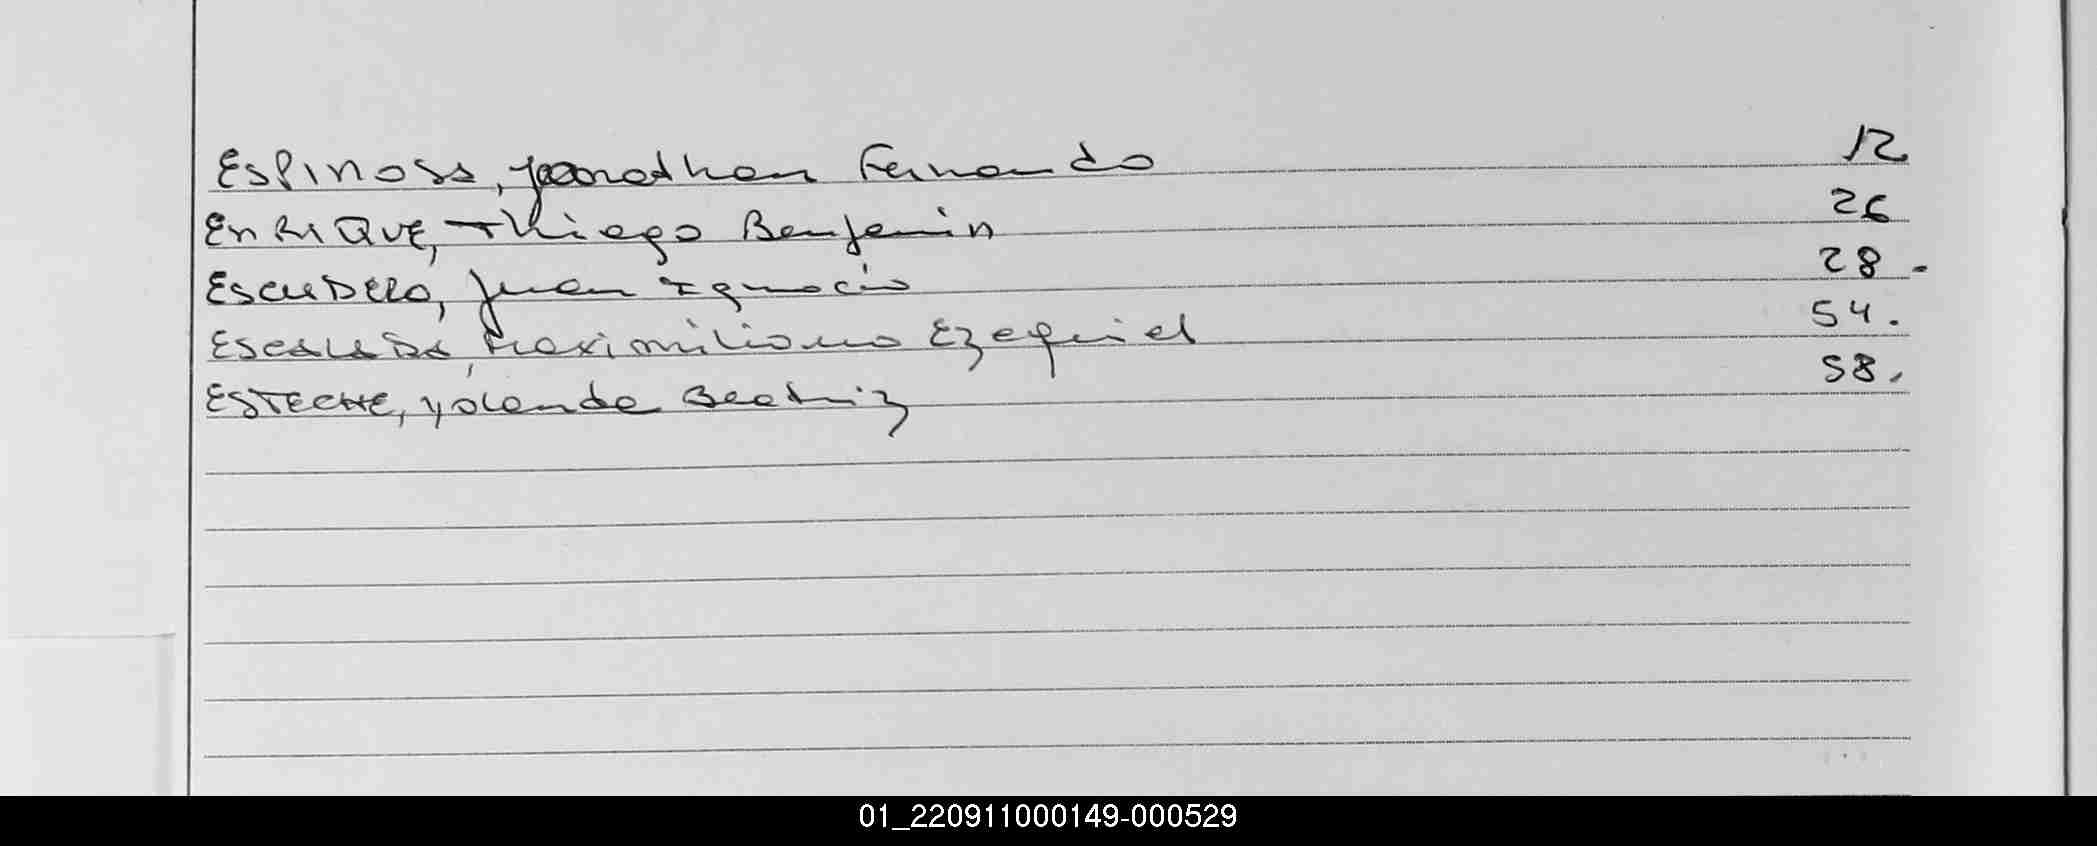 Espinosa, Jonathan Fernando 12
EnRiQUE, Thiago Benjamin 26
EscuDero, Juan Ignacio 28.
EscalaDa, Maximiliano Ezequiel 54.
ESTECHE, Yolanda Beatriz 58.
01_220911000149-000529